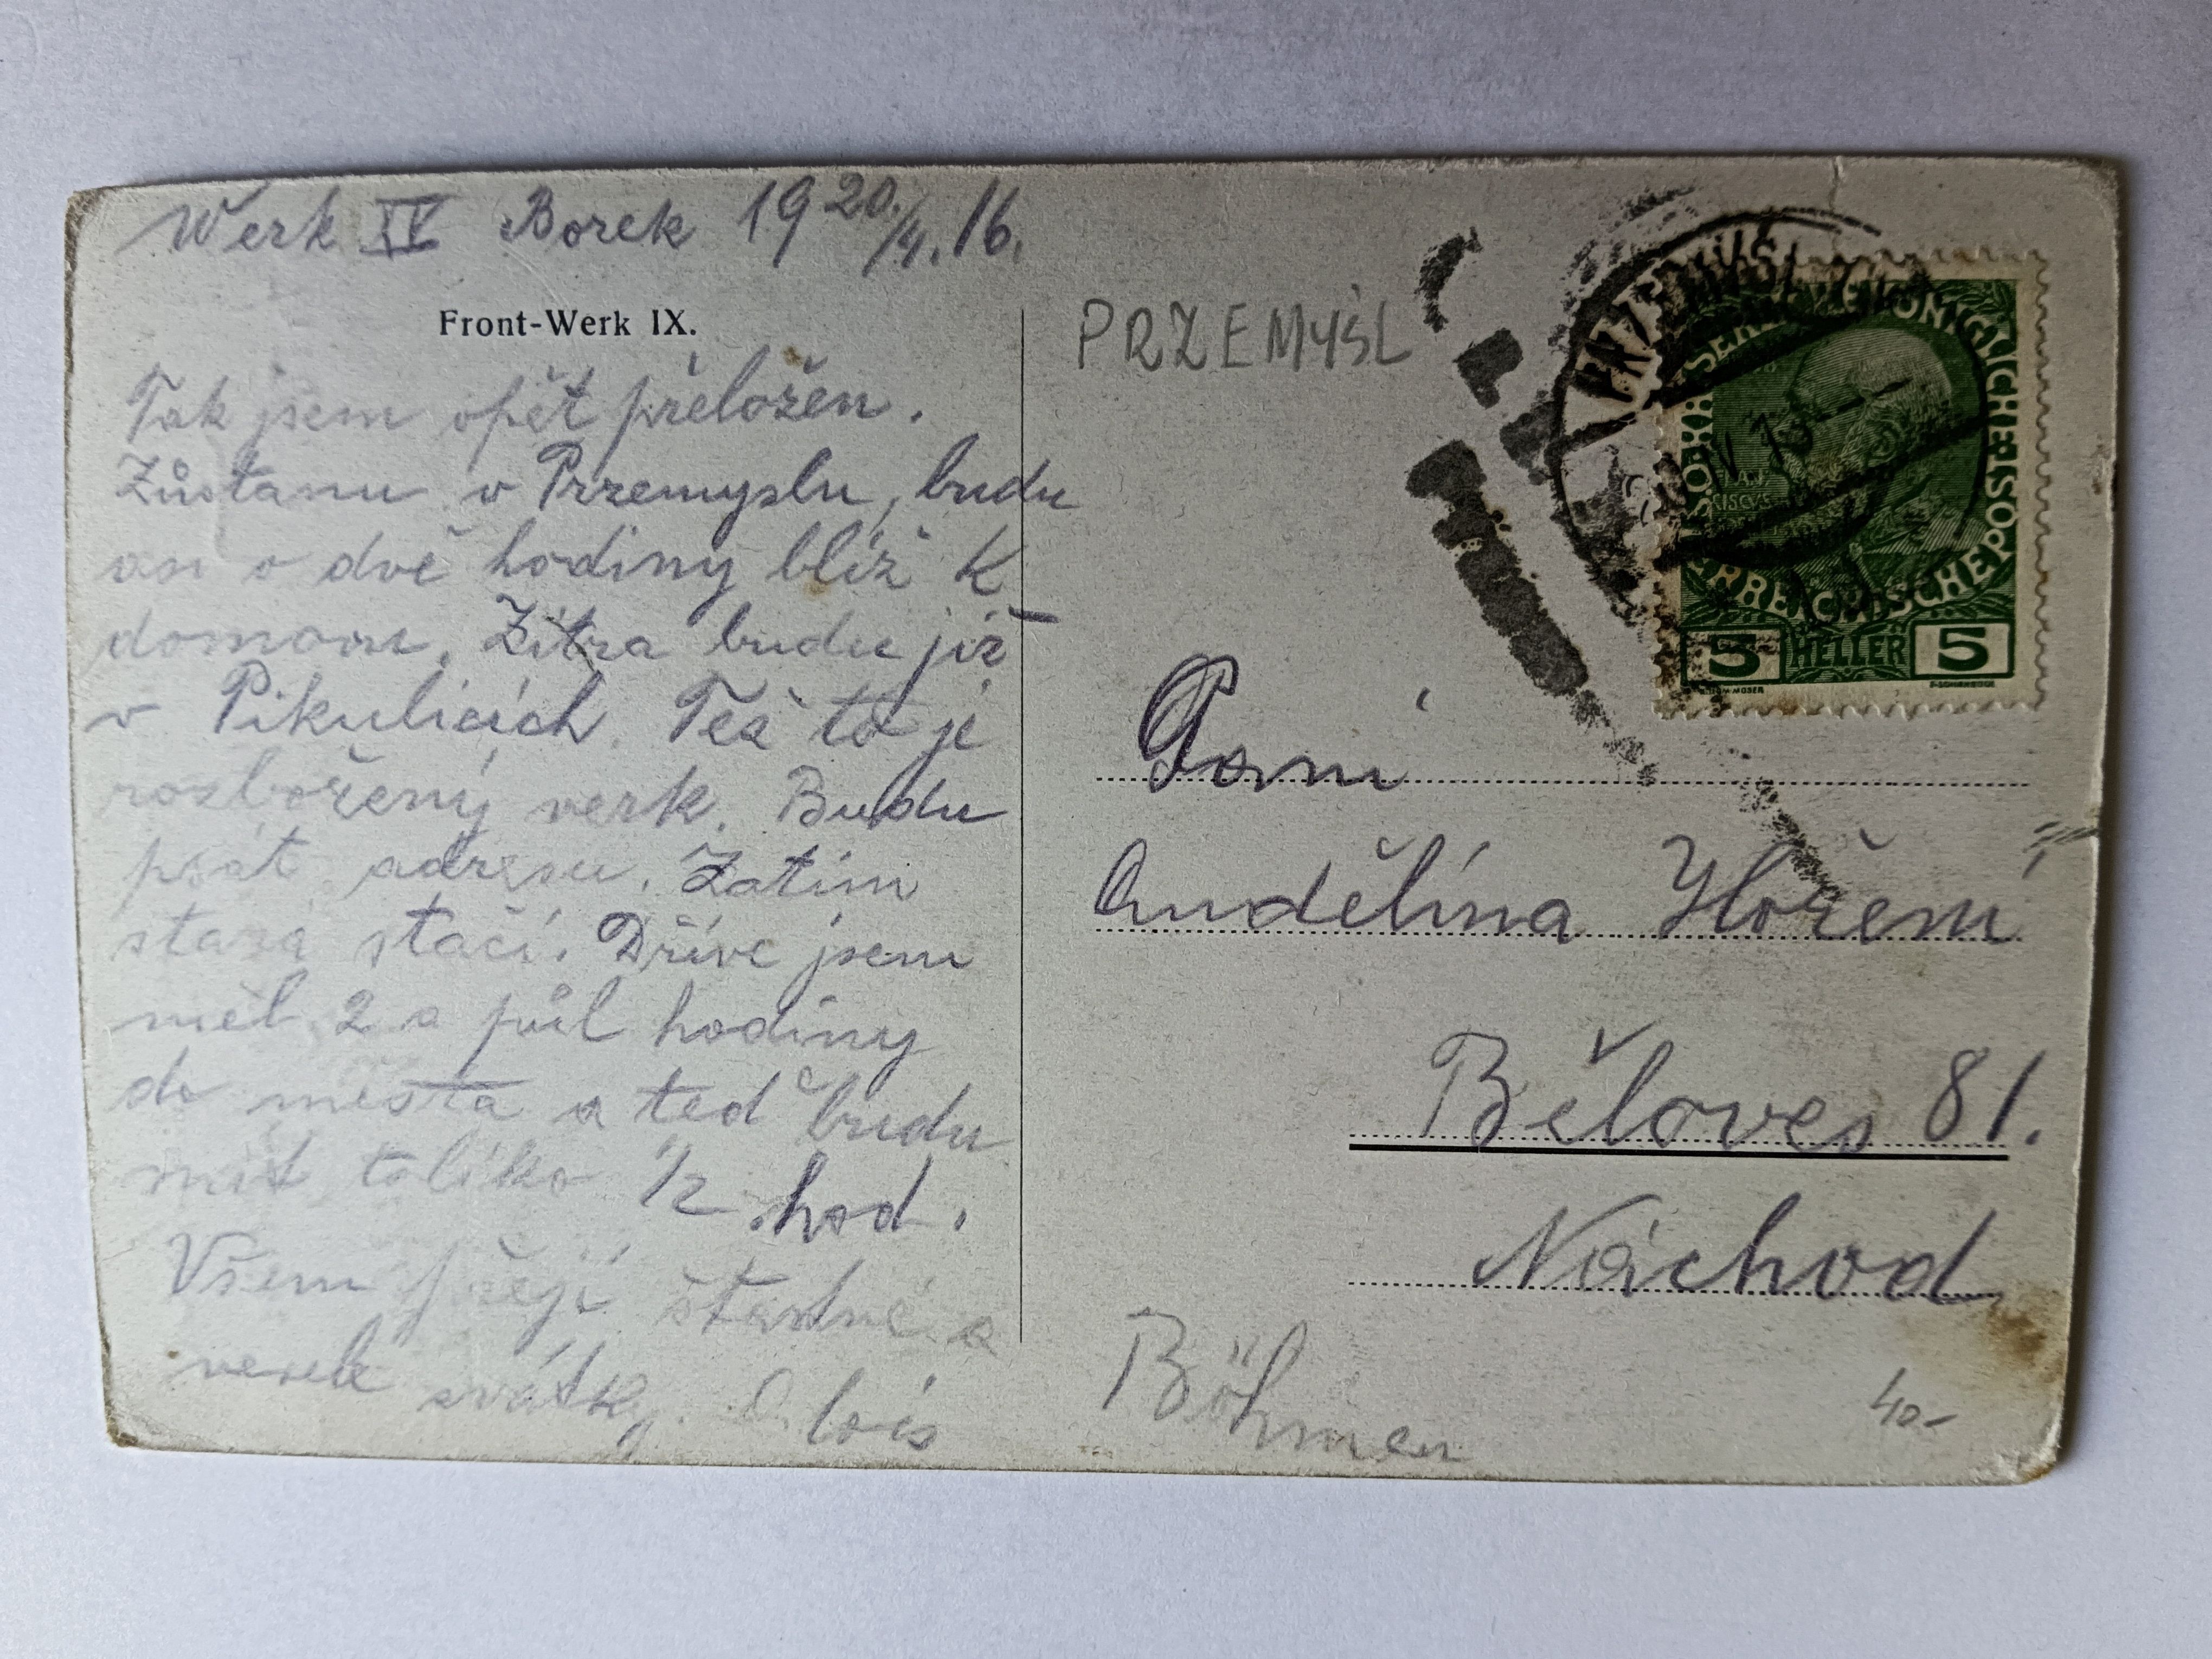 Werk IV Borek 19 20./4. 16.
Front-Werk IX.
Tak jsem opět přeložen.
Zůstanu v Przemyslu, budu
asi o dvě hodiny blíž k
domovu. Zítra budu již
v Pikulicích. Též to je
rozbořený verk. Budu
psát adresu. Zatím
stará stačí. Dříve jsem
měl 2 a půl hodiny
do města a teď budu
mít toliko 1/2 hod.
Všem přeji šťastné a
veselé svátky. Alois
PRZEMYŚL
PRZEMYŚL
KAISERL. KÖNIGLICHE ÖSTERREICHISCHE POST
5 HELLER 5
Paní
Andělína Hoření
Běloves 81.
Náchod
Böhmen
40-